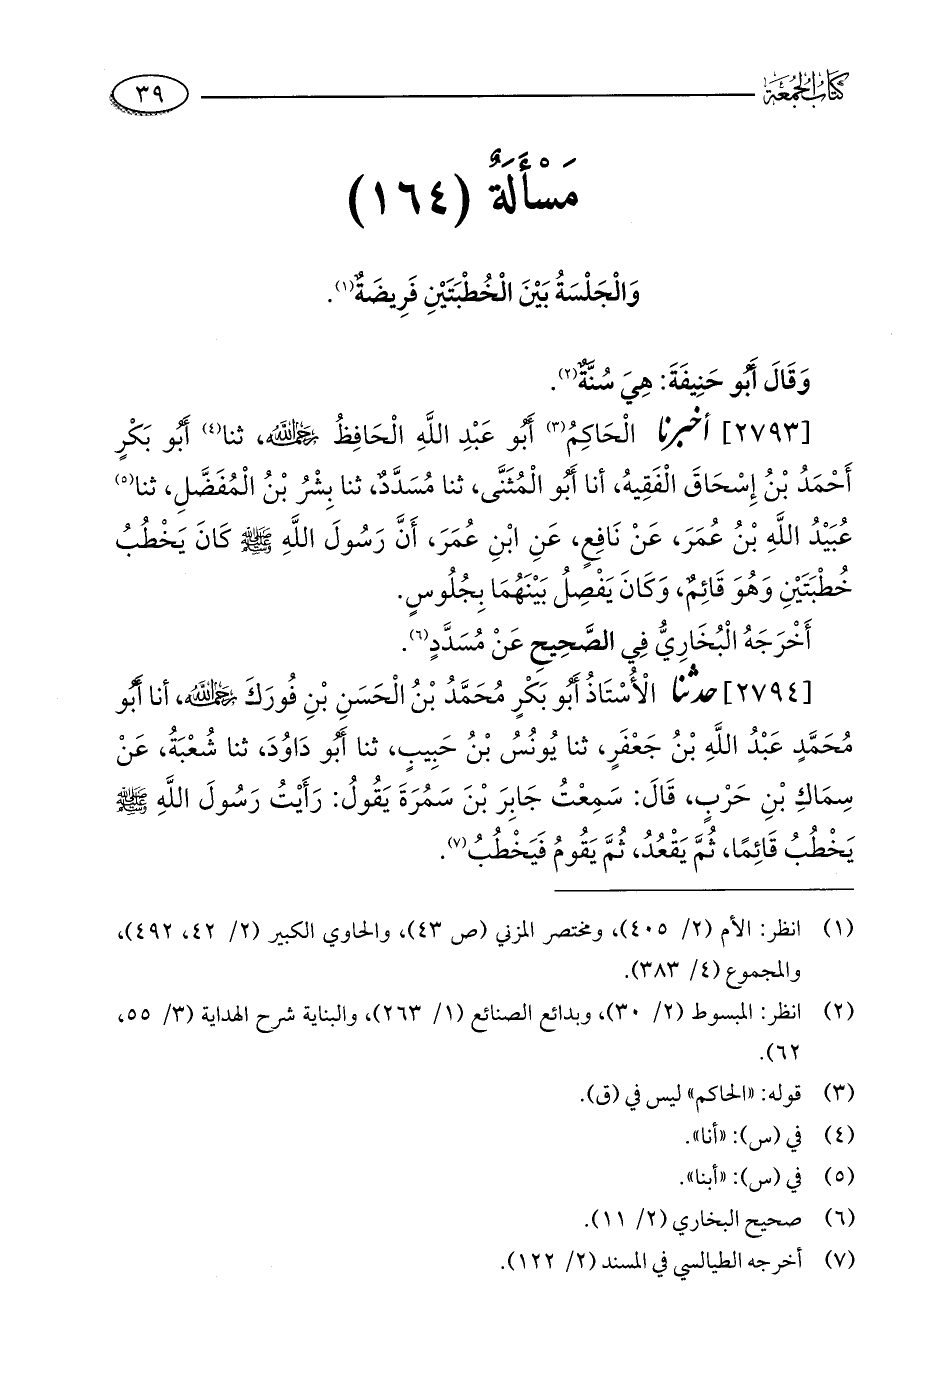 كتاب الجمعة ٣٩
مَسْأَلَةٌ (١٦٤)
وَالْجَلْسَةُ بَيْنَ الْخُطْبَتَيْنِ فَرِيضَةٌ(١).
وَقَالَ أَبُو حَنِيفَةَ: هِيَ سُنَّةٌ(٢).
[٢٧٩٣] أخبرنا الْحَاكِمُ(٣) أَبُو عَبْدِ اللَّهِ الْحَافِظُ رحمه الله، ثنا(٤) أَبُو بَكْرٍ
أَحْمَدُ بْنُ إِسْحَاقَ الْفَقِيهُ، أنا أَبُو الْمُثَنَّى، ثنا مُسَدَّدٌ، ثنا بِشْرُ بْنُ الْمُفَضَّلِ، ثنا(٥)
عُبَيْدُ اللَّهِ بْنُ عُمَرَ، عَنْ نَافِعٍ، عَنِ ابْنِ عُمَرَ، أَنَّ رَسُولَ اللَّهِ ﷺ كَانَ يَخْطُبُ
خُطْبَتَيْنِ وَهُوَ قَائِمٌ، وَكَانَ يَفْصِلُ بَيْنَهُمَا بِجُلُوسٍ.
أَخْرَجَهُ الْبُخَارِيُّ فِي الصَّحِيحِ عَنْ مُسَدَّدٍ(٦).
[٢٧٩٤] حدثنا الْأُسْتَاذُ أَبُو بَكْرٍ مُحَمَّدُ بْنُ الْحَسَنِ بْنِ فُورَكَ رحمه الله، أنا أَبُو
مُحَمَّدٍ عَبْدُ اللَّهِ بْنُ جَعْفَرٍ، ثنا يُونُسُ بْنُ حَبِيبٍ، ثنا أَبُو دَاوُدَ، ثنا شُعْبَةُ، عَنْ
سِمَاكِ بْنِ حَرْبٍ، قَالَ: سَمِعْتُ جَابِرَ بْنَ سَمُرَةَ يَقُولُ: رَأَيْتُ رَسُولَ اللَّهِ ﷺ
يَخْطُبُ قَائِمًا، ثُمَّ يَقْعُدُ، ثُمَّ يَقُومُ فَيَخْطُبُ(٧).
(١) انظر: الأم (٢/ ٤٠٥)، ومختصر المزني (ص ٤٣)، والحاوي الكبير (٢/ ٤٢، ٤٩٢)،
والمجموع (٤/ ٣٨٣).
(٢) انظر: المبسوط (٢/ ٣٠)، وبدائع الصنائع (١/ ٢٦٣)، والبناية شرح الهداية (٣/ ٥٥،
٦٢).
(٣) قوله: «الحاكم» ليس في (ق).
(٤) في (س): «أنا».
(٥) في (س): «أبنا».
(٦) صحيح البخاري (٢/ ١١).
(٧) أخرجه الطيالسي في المسند (٢/ ١٢٢).